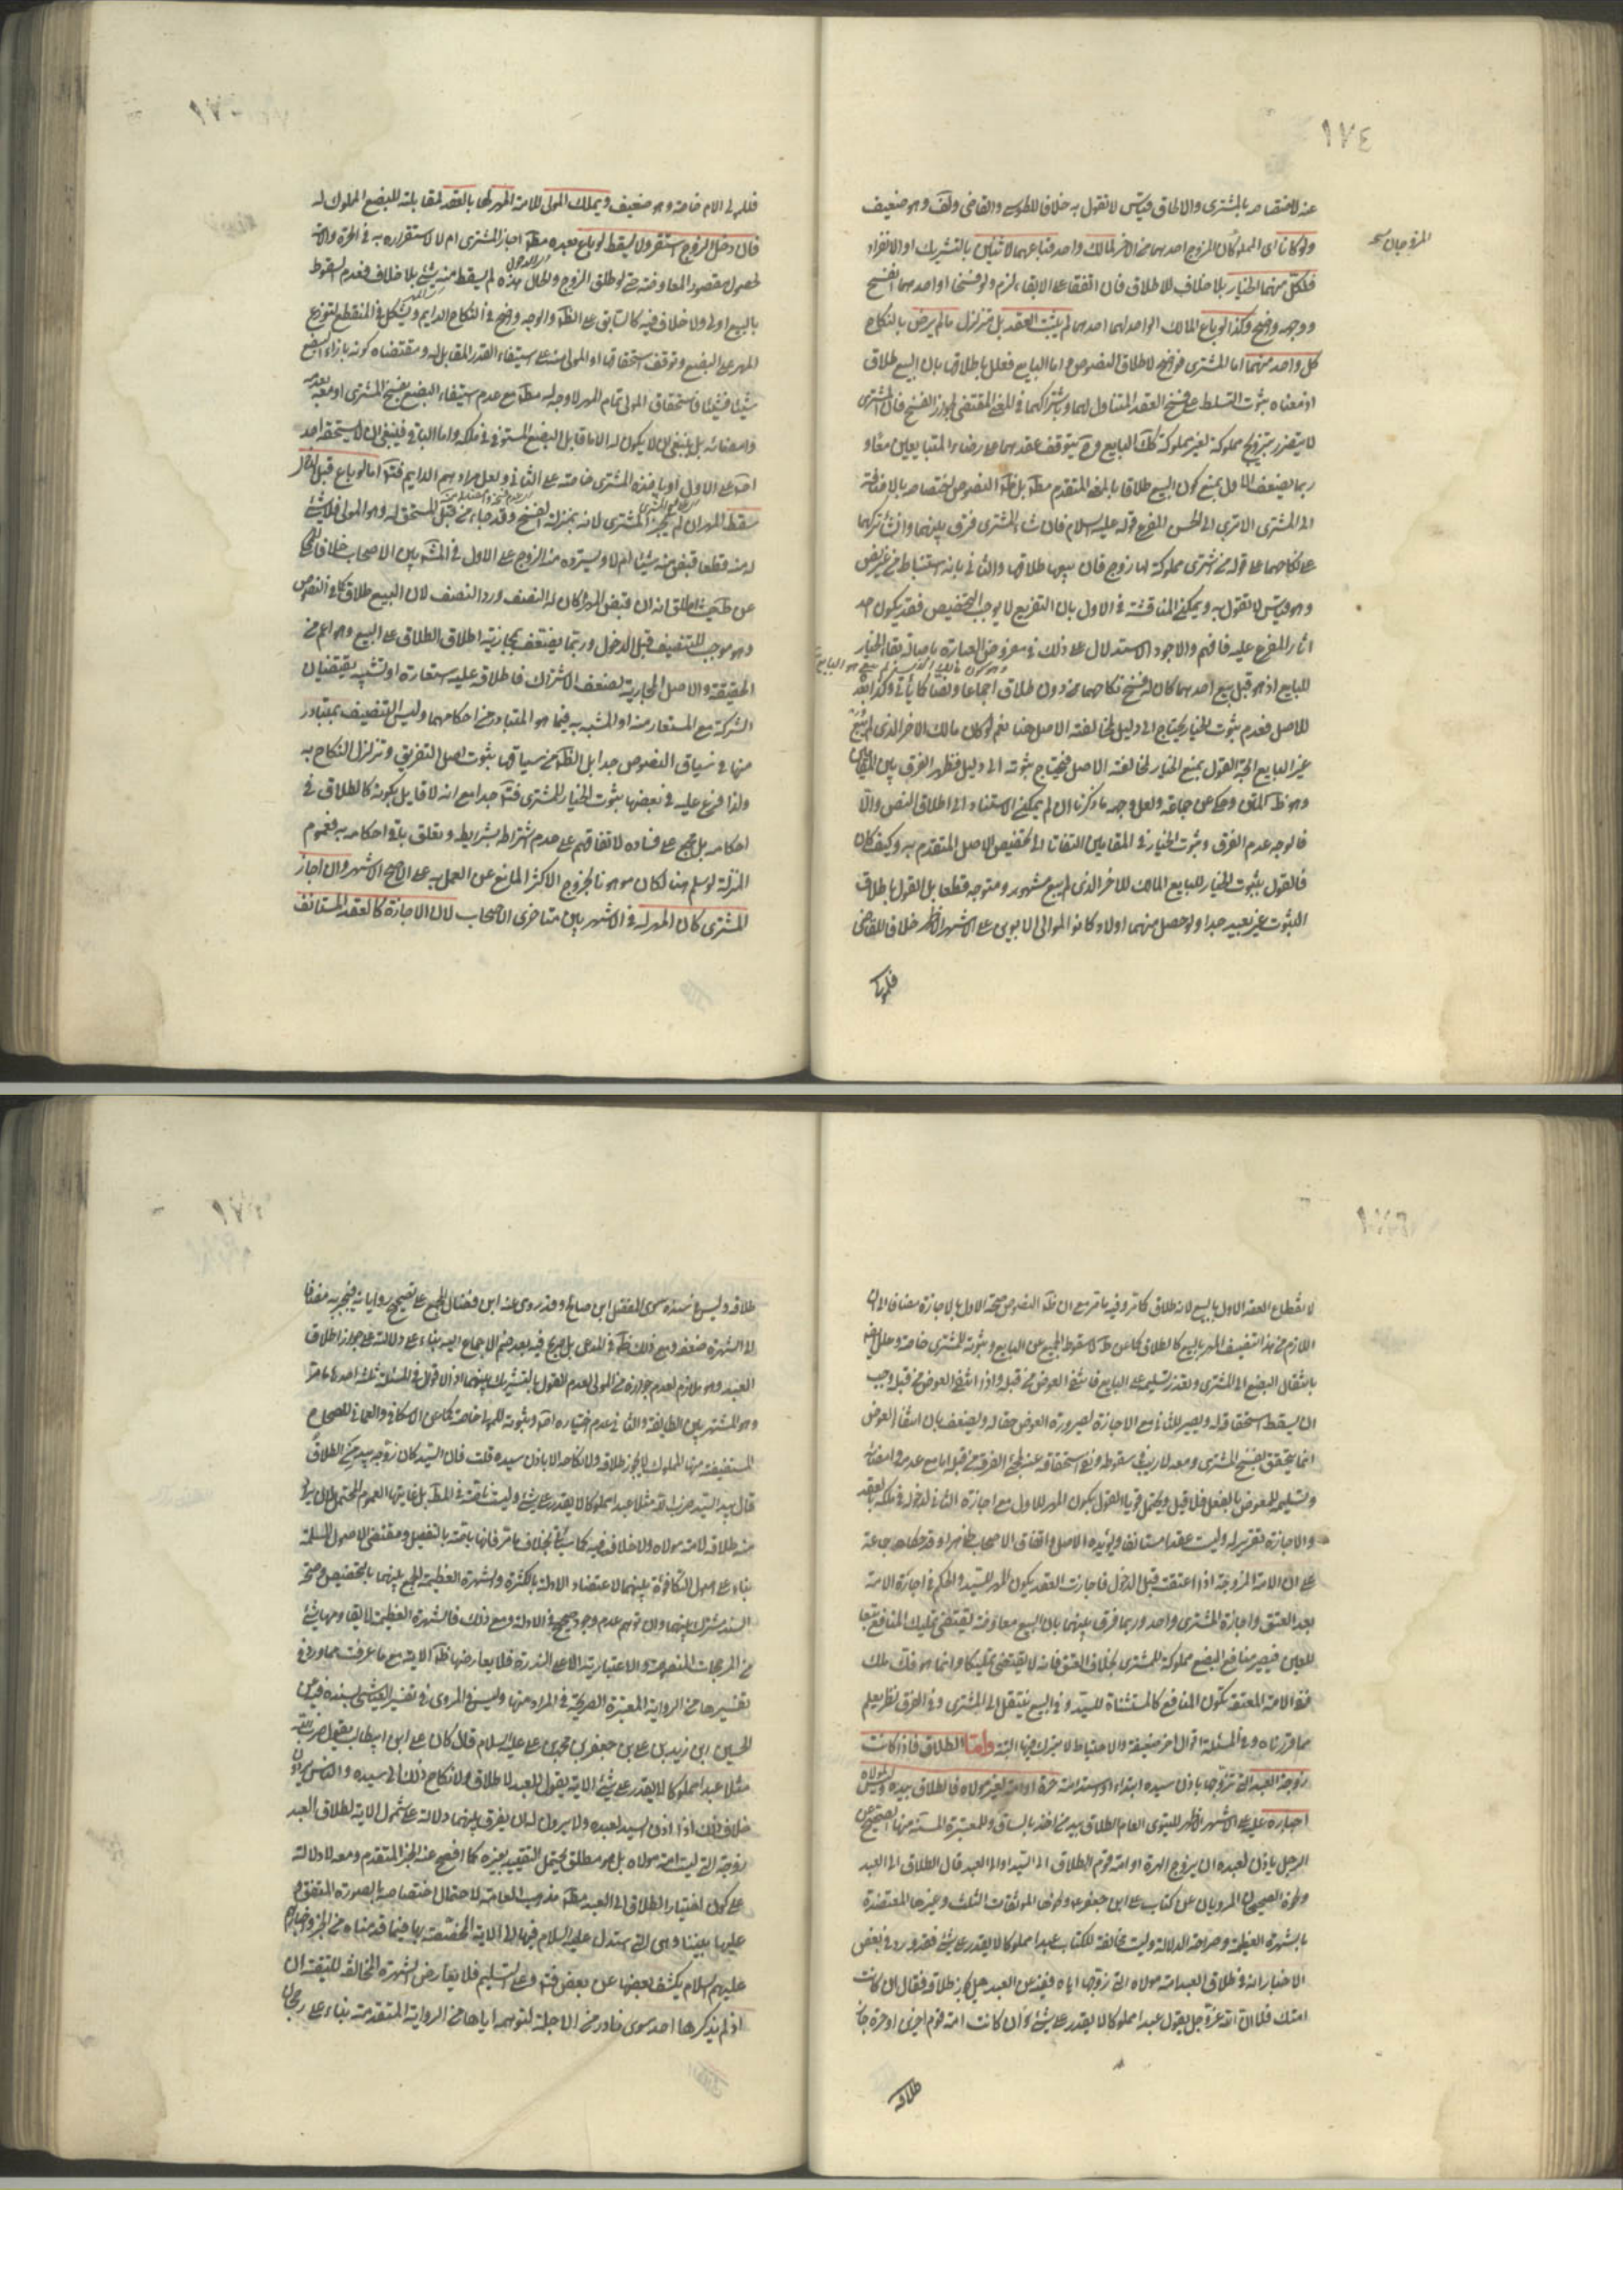 ١٧٤
عنه لاختصاصه بالمشترى والالحاق قياس لا نقول به خلافا للطوسى والقاضى ولف وهو ضعيف
ولو كانا اى المملوكان المزوج احدهما من الاخر لمالك واحد فباعهما لاثنين بالتشريك او الانفراد
المزوجان
فلكل منهما الخيار بلا خلاف للاطلاق فان اتفقا على الابقاء لزم ولو فسخا او احدهما انفسخ
ووجهه واضح وكذا لو باع المالك الواحد لهما احدهما لم يثبت العقد بل متزلزل ما لم يرض بالنكاح
كل واحد منهما اما المشترى فواضح لاطلاق النصوص واما البايع فعلل باطلاقها بان البيع طلاق
اذ معناه ثبوت التسلط على فسخ العقد المتناول لهما وباشتراكهما فى المعنى المقتضى لجواز الفسخ فان المشترى
لا يتضرر بتزويج مملوكة لغير مملوكه كك البايع وح يتوقف عقدهما على رضاء المتبايعين معا و
ربما يضعف الاول بمنع كون البيع طلاقا بالمعنى المتقدم مطلقا بل ظ النصوص اختصاصه بالاضافة
الى المشترى الا ترى الى الحسن المفرع قوله عليه السلام فان شاء المشترى فرق بينهما وان شاء تركهما
على نكاحهما على قوله من اشترى مملوكة لها زوج فان بيعها طلاقها والثانى بانه استنباط من غير نص
وهو قياس لا نقول به ويمكن المناقشة فى الاول بان التفريع لا يوجب التخصيص فقد يكون احد
اثار المفرع عليه فافهم والاجود الاستدلال على ذلك فى مفروض العبارة باصالة بقاء الخيار
للبايع اذ هو قبل بيع احدهما كان له فسخ نكاحهما من دون طلاق اجماعا ونصا كما يأتى وكذا بعد
للاصل فعدم ثبوت الخيار يحتاج الى دليل لمخالفته الاصل هنا نعم لو كان مالك الاخر الذى لم يبع
غير البايع اتجه القول بمنع الخيار لمخالفته الاصل فيحتاج ثبوته الى دليل فظهر الفرق بين المقامين
وهو ظ المتن وحكى عن جماعة ولعل وجهه ما ذكرنا ان لم يمكن الاستناد الى اطلاق النص والا
فالوجه عدم الفرق وثبوت الخيار فى المقامين التفاتا الى تخصيص الاصل المتقدم به وكيف كان
فالقول بثبوت الخيار للبايع المالك للاخر الذى لم يبع مشهور ومتوجه قطعا بل القول باطلاق
الثبوت غير بعيد جدا ولو حصل منهما اولاد كانوا الموالى الابوين على الاشهر الاظهر خلافا للقاضى
فللمولى
فللمولى الام خاصة وهو ضعيف ويملك المولى للامة المهر لها بالعقد لمقابلته للبضع المملوك له
فان دخل الزوج استقر ولا يسقط لو باع بعده مطلقا اجاز المشترى ام لا لاستقراره به فى الحرة والامة
لحصول مقصود المعاوضة حتى لو طلق الزوج والحال هذه لم يسقط منه شىء بلا خلاف فعدم السقوط
بالبيع اولى ولا خلاف فيه كالسابق على الظ والوجه واضح فى النكاح الدايم ويشكل فى المنقطع لتوزع
المهر على البضع وتوقف استحقاقها او المولى منه على استيفاء القدر المقابل له ومقتضاه كونه بازاء البضع
شيئا فشيئا فاستحقاق المولى تمام المهر لا وجه له مطلقا مع عدم استيفاء البضع بفسخ المشترى او معه
وامضائه بل ينبغى ان لا يكون له الا ما قابل البضع المستوفى فى ملكه واما الباقى فينبغى ان لا يستحقه احد
اصلا على الاول او ياخذه المشترى خاصة على الثانى ولعل مرادهم الدايم فتأمل اما لو باع قبل الدخول
سقط المهر ان لم يجز المشترى لانه بمنزلة الفسخ وقد جاء من قبل المستحق له وهو المولى فلا شىء
له منه قطعا قبض منه شيئا ام لا ويسترده منه الزوج على الاول فى المشهور بين الاصحاب خلافا
عن ط حيث اطلق انه ان قبض المهر كان له النصف ورد النصف لان البيع طلاق كما فى النصوص
وهو موجب للتنصيف قبل الدخول وربما يضعف بمجازية اطلاق الطلاق على البيع وهو اعم من
الحقيقة والاصل المجازية لضعف الاشتراك فاطلاقه عليه استعارة او تشبيه يقتضيان
الشركة مع المستعار منه او المشبه به فيما هو المتبادر من احكامهما وليس التنصيف بمتبادر
منها فى سياق النصوص جدا بل الظ من سياقها ثبوت اصل التفريق وتزلزل النكاح به
ولذا فرع عليه فى بعضها بثبوت الخيار للمشترى فتأمل جدا مع انه لا قايل بكونه كالطلاق فى
احكامه بل مجمع على فساده لاتفاقهم على عدم اشتراطه بشرايطه وتعلق باقى احكامه به فعموم
المنزلة لو سلم هنا لكان موهونا بخروج الاكثر المانع عن العمل به على الاصح الاشهر وان اجاز
المشترى كان المهر له فى الاشهر بين متاخرى الاصحاب لان الاجازة كالعقد المستأنف
لانقطاع العقد الاول بالبيع لانه طلاق كما مر وفيه ما مر مع ان ظ النصوص صحة الاول بالاجازة مضافا الى ان
اللازم من هذا تنصيف المهر بالبيع كالطلاق كما عن ط لا سقوط الجميع عن البايع وثبوته للمشترى خاصة وعلل ايضا
بانتقال البضع الى المشترى وتعذر تسليمه على البايع فانتفى العوض من قبله واذا انتفى العوض من قبله وجب
ان يسقط استحقاقه له ويصير للثانى مع الاجازة لصيرورة العوض حقا له ويضعف بان انتفاء العوض
انما يتحقق بفسخ المشترى ومعه لا ريب فى سقوطه ونفى استحقاقه عنه لمجئ الفرقة من قبله اما مع عدمه وامضائه
وتسليمه المعوض بالفعل فلا قيل ويحتمل قويا القول بكون المهر للاول مع اجازة الثانى لدخوله فى ملكه بالعقد
والاجازة تقرير له وليست عقدا مستانفا ويؤيده الاصل واتفاق الاصحاب ظاهرا وقد حكاه جماعة
على ان الامة المزوجة اذا اعتقت قبل الدخول فاجازت العقد يكون المهر للسيد والحكم فى اجازة الامة
بعد العتق واجازة المشترى واحد وربما فرق بينهما بان البيع معاوضة يقتضى تمليك المنافع تبعا
للعين فيصير منافع البضع مملوكة للمشترى بخلاف العتق فانه لا يقتضى تمليكا وانما هو فك ملك
ففى الامة المعتقة تكون المنافع كالمستثناة للسيد وفى البيع ينتقل الى المشترى وفى الفرق نظر يعلم
مما قررناه وفى المسئلة اقوال اخر ضعيفة والاحتياط لا يترك فيها البتة واما الطلاق فاذا كانت
زوجة العبد التى تزوجها باذن سيده ابتداء او استدامة حرة او امة لغير مولاه فالطلاق بيده وليس لمولاه
اجباره عليه على الاشهر الاظهر للنبوى العام الطلاق بيد من اخذ بالساق وللمعتبرة المستفيضة منها الصحيح عن
الرجل ياذن لعبده ان يتزوج الحرة او امة قوم الطلاق الى السيد او الى العبد قال الطلاق الى العبد
ونحوه الصحيحان المرويان عن كتاب على ابن جعفر ع ونحوها الموثقات الثلث وغيرها المعتضدة
بالشهرة العظيمة وصراحة الدلالة وليست مخالفة للكتاب عبدا مملوكا لا يقدر على شىء فقد ورد فى بعض
الاخبار انه فى طلاق العبد امة مولاه التى زوجها اياه ففيه عن العبد هل يجوز طلاقه فقال ان كانت
امتك فلا ان الله عز وجل يقول عبدا مملوكا لا يقدر على شىء وان كانت امة قوم اخرين او حرة جاز
طلاقه
طلاقه وليس فى سنده سوى المفضل ابن صالح وقد روى عنه ابن فضال المجمع على تصحيح رواياته فينجبر به مضافا
الى الشهرة ضعفه ومع ذلك ظ فى المدعى بل صريح فيه بعد ضم الاجماع اليه بناء على دلالته على جواز اطلاق
العبد وهو ملازم لعدم جوازه من المولى لعدم القول بالتشريك بينهما اذ الاقوال فى المسئلة ثلثة احدها ما مر
وهو المشتهر بين الطايفة والثانى عدم اختياره اصلا وثبوته للمولى خاصة كما عن الاسكافى والعمانى للصحاح
المستفيضة منها المملوك لا يجوز طلاقه ولا نكاحه الا باذن سيده قلت فان السيد كان زوجه بيد من الطلاق
قال بيد السيد ضرب الله مثلا عبدا مملوكا لا يقدر على شىء وليست ناصة فى المط بل غايتها العموم المحتمل لان يراد
منه طلاقه لامة مولاه ولا خلاف فيه كما سيأتى بخلاف ما مر فانها ناصة بالتفصيل ومقتضى الاصول المسلمة
بناء على اصول التكافؤ بينهما لاعتضاد الادلة بالكثرة والشهرة العظيمة الجمع بينهما بالتخصيص وصحة
السند مشترك بينهما وان توهم عدم وجود صحيح فى الادلة ومع ذلك فالشهرة العظيمة لا يقاومها شىء
من المرجحات المنصوصة والاعتبارية الا على الندرة فلا يعارضها ظ الاية مع ما عرفت مما ورد فى
تفسيرها من الرواية المعتبرة الصريحة فى المراد منها وليس فى المروى فى تفسير العياشى بسنده فيه عن
الحسين ابن زيد بن على عن جعفر بن محمد عليه السلام قال كان على ابن ابيطالب يقول ضرب الله
مثلا عبدا مملوكا لا يقدر على شىء الاية يقول للعبد لا طلاق ولا نكاح ذلك الى سيده والناس يروون
خلاف ذلك اذا اذن السيد لعبده ولا يرون له ان يفرق بينهما دلالة على شمول الاية لطلاق العبد
زوجته التى ليست امة مولاه بل هو مطلق يحتمل التقييد بغيره كما افصح عنه الخبر المتقدم ومعه لا دلالة
على كون اختيار الطلاق الى العبد مطلقا مذهب العامة لاحتمال اختصاصه بالصورة المتفق
عليها بيننا وهى التى استدل عليه السلام فيها الى الاية المختصة بها فيما قدمناه من الخبر واخبارهم
عليهم السلام يكشف بعضها عن بعض فتأمل وعلى التسليم فلا يعارض الشهرة المخالفة للتقية ان
اذ لم يذكرها احد سوى نادر من الاجلة لتوهمه اياها من الرواية المتقدمة بناء على رجحان